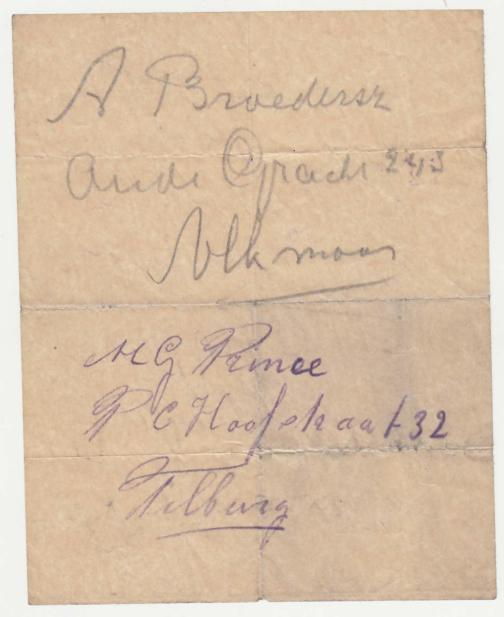 A Broedersz
Oude Gracht 245
Alkmaar
M G Prince
P C Hoofstraat 32
Tilburg